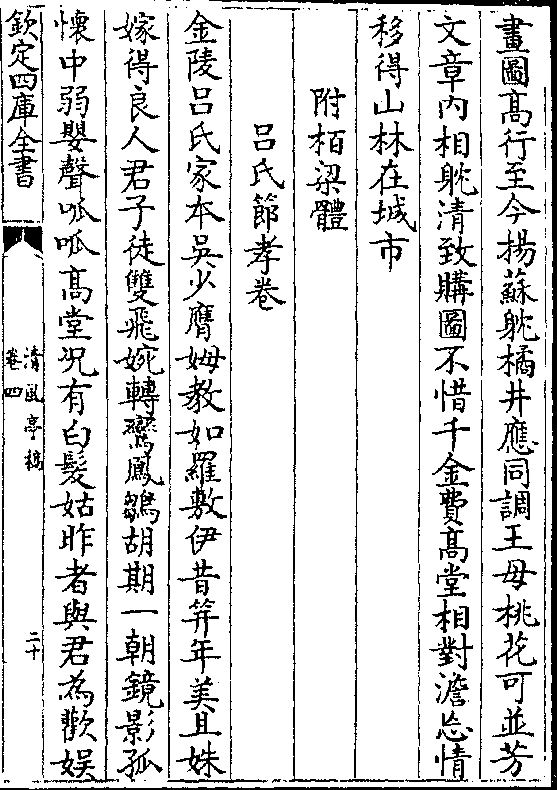 畫圖髙行至今揚蘇躭橘井應同調王母桃花可並芳
文章内相躭清致購圖不惜千金費髙堂相對澹忘情
移得山林在城市
附栢梁體
吕氏節孝卷
金陵吕氏家本吳少膺姆教如羅敷伊昔笄年美且姝
嫁得良人君子徒雙飛婉轉鸞鳳雛胡期一朝鏡影孤
懷中弱嬰聲呱呱髙堂况有白髮姑昨者與君為歡娱
欽定四庫全書
清風亭稿
卷四
二十